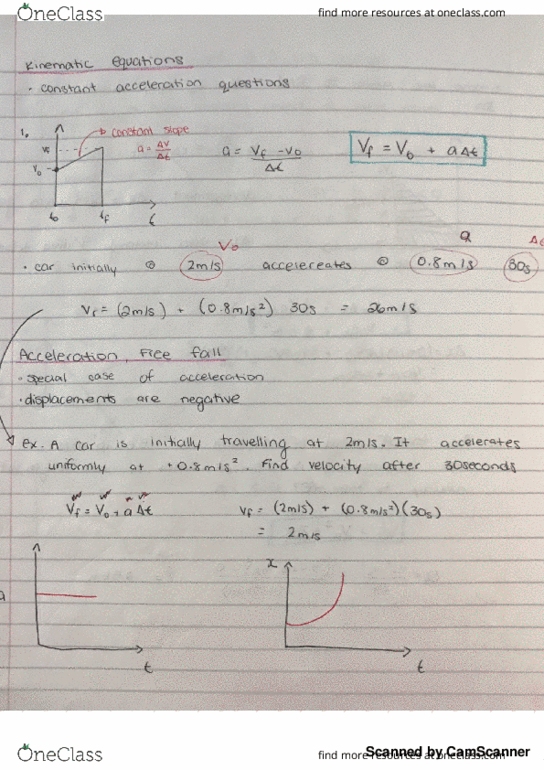 OneClass
find more resources at oneclass.com
Kinematic equations
· constant acceleration questions
1.
constant slope
a = Δv/Δt
Vf
Vo
to
tf
t
a = Vf - Vo / Δt
Vf = Vo + a Δt
Vo
a
Δt
· car initially @ 2m/s accelereates @ 0.8m/s 30s
Vf = (2m/s) + (0.8m/s²) 30s = 26m/s
Acceleration, Free fall
· special case of acceleration
· displacements are negative
ex. A car is initially travelling at 2m/s. It accelerates
uniformly at +0.8m/s². Find velocity after 30seconds
Vf = Vo + a Δt
Vf = (2m/s) + (0.8m/s²)(30s)
= 2m/s
a
t
x
t
OneClass
find more resources at oneclass.com
Scanned by CamScanner